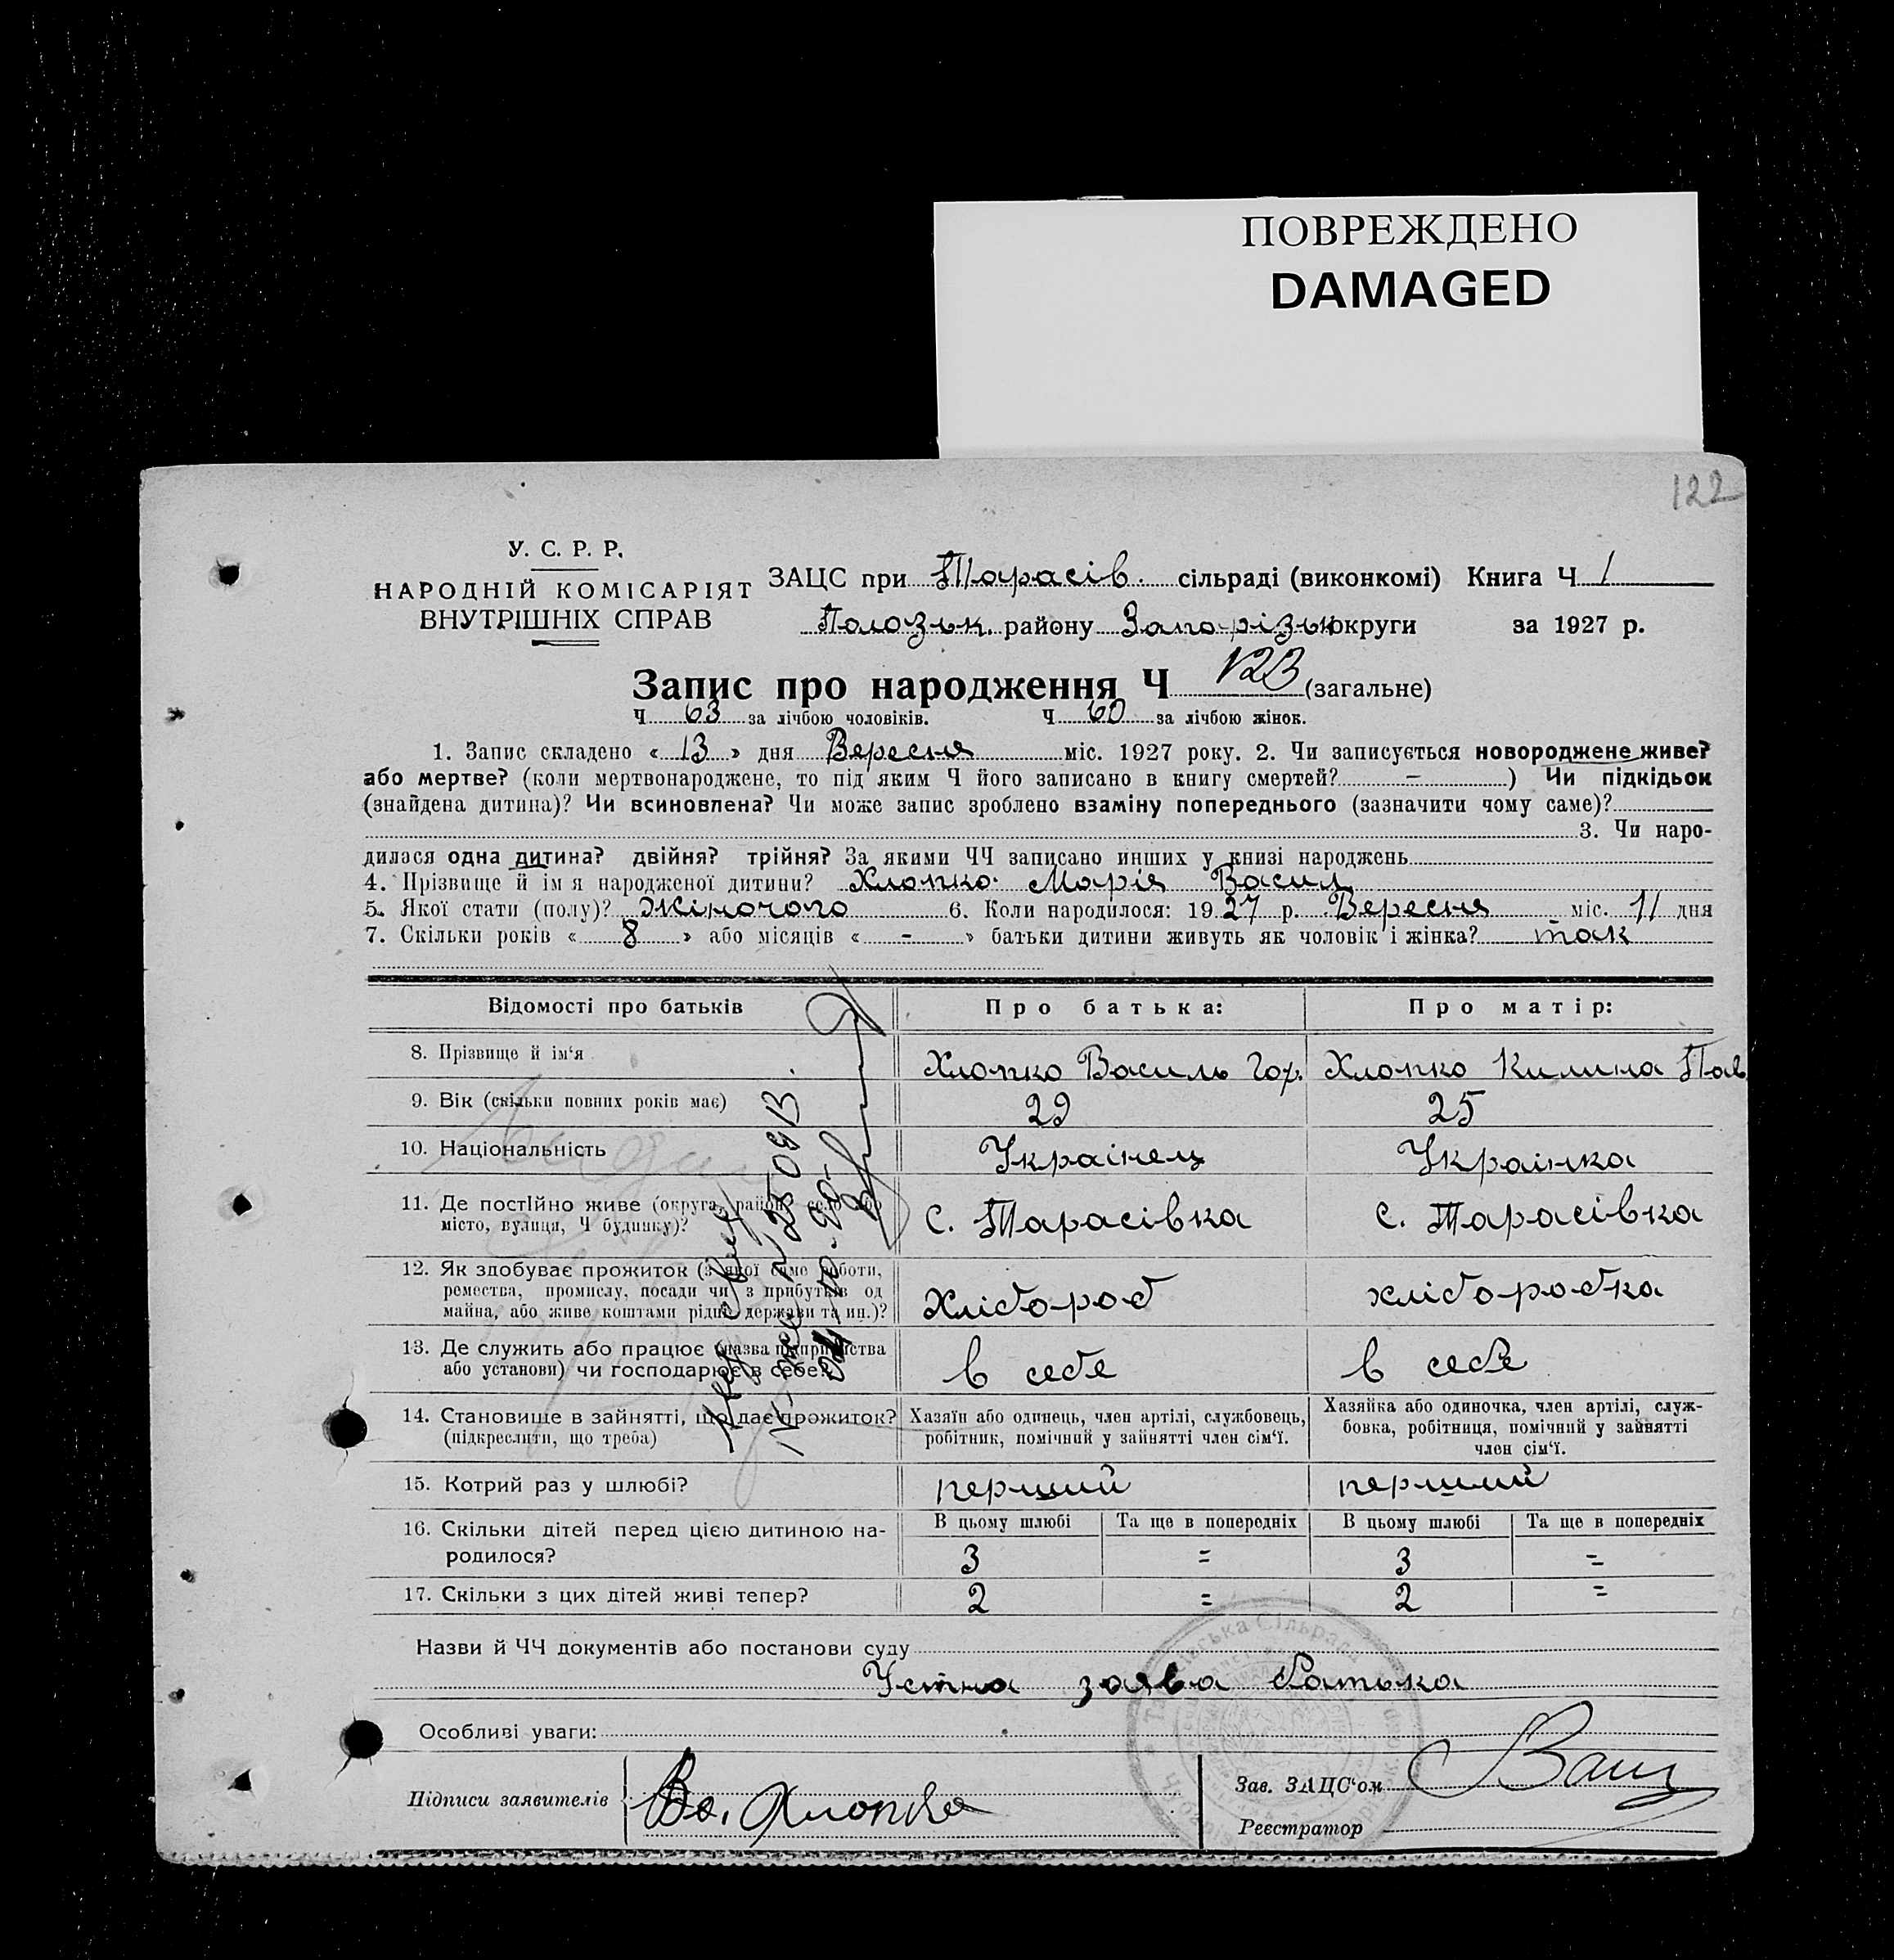 ПОВРЕЖДЕНО
DAMAGED
122
У. С. Р. Р.
НАРОДНІЙ КОМІСАРІЯТ
ВНУТРІШНІХ СПРАВ
ЗАЦС при Тарасів. сільраді (виконкомі) Книга Ч 1
Полозьк. району Запорізьк округи за 1927 р.
Запис про народження Ч 123 (загальне)
Ч 63 за лічбою чоловіків. Ч 60 за лічбою жінок.
1. Запис складено « 13 » дня Вересня міс. 1927 року. 2. Чи записується новороджене живе?
або мертве? (коли мертвонароджене, то під яким Ч його записано в книгу смертей? - ) Чи підкідьок
(знайдена дитина)? Чи всиновлена? Чи може запис зроблено взаміну попереднього (зазначити чому саме)?
3. Чи наро-
дилася одна дитина? двійня? трійня? За якими ЧЧ записано инших у книзі народжень
4. Прізвище й ім я народженої дитини? Хлопко Марія Васил
5. Якої стати (полу)? Жіночого 6. Коли народилося: 1927 р. Вересня міс. 11 дня
7. Скільки років « 8 » або місяців « - » батьки дитини живуть як чоловік і жінка? так
Відомості про батьків Про батька: Про матір:
8. Прізвище й ім‘я Хлопко Василь Гор. Хлопко Килина Пав
9. Вік (скільки повних років має) 29 25
10. Національність Українець Українка
11. Де постійно живе (округа, район, село або
місто, вулиця, Ч будинку)? с. Тарасівка с. Тарасівка
12. Як здобуває прожиток (з якої саме роботи,
ремества, промислу, посади чи з прибутків од
майна, або живе коштами рідні, держави та ин.)? Хлібороб хліборобка
13. Де служить або працює (назва підприємства
або установи) чи господарює в себе? в себе в себе
14. Становище в зайнятті, що дає прожиток?
(підкреслити, що треба)
Хазяїн або одинець, член артілі, службовець,
робітник, помічний у зайнятті член сім‘ї.
Хазяйка або одиночка, член артілі, служ-
бовка, робітниця, помічний у зайнятті
член сім‘ї.
15. Котрий раз у шлюбі? перший перший
16. Скільки дітей перед цією дитиною на-
родилося?
В цьому шлюбі Та ще в попередніх В цьому шлюбі Та ще в попередніх
3 = 3 =
17. Скільки з цих дітей живі тепер? 2 = 2 =
Назви й ЧЧ документів або постанови суду
Устна заява батька
Особливі уваги:
Підписи заявителів Ва. Хлопко
Зав. ЗАЦС‘ом
Реєстратор